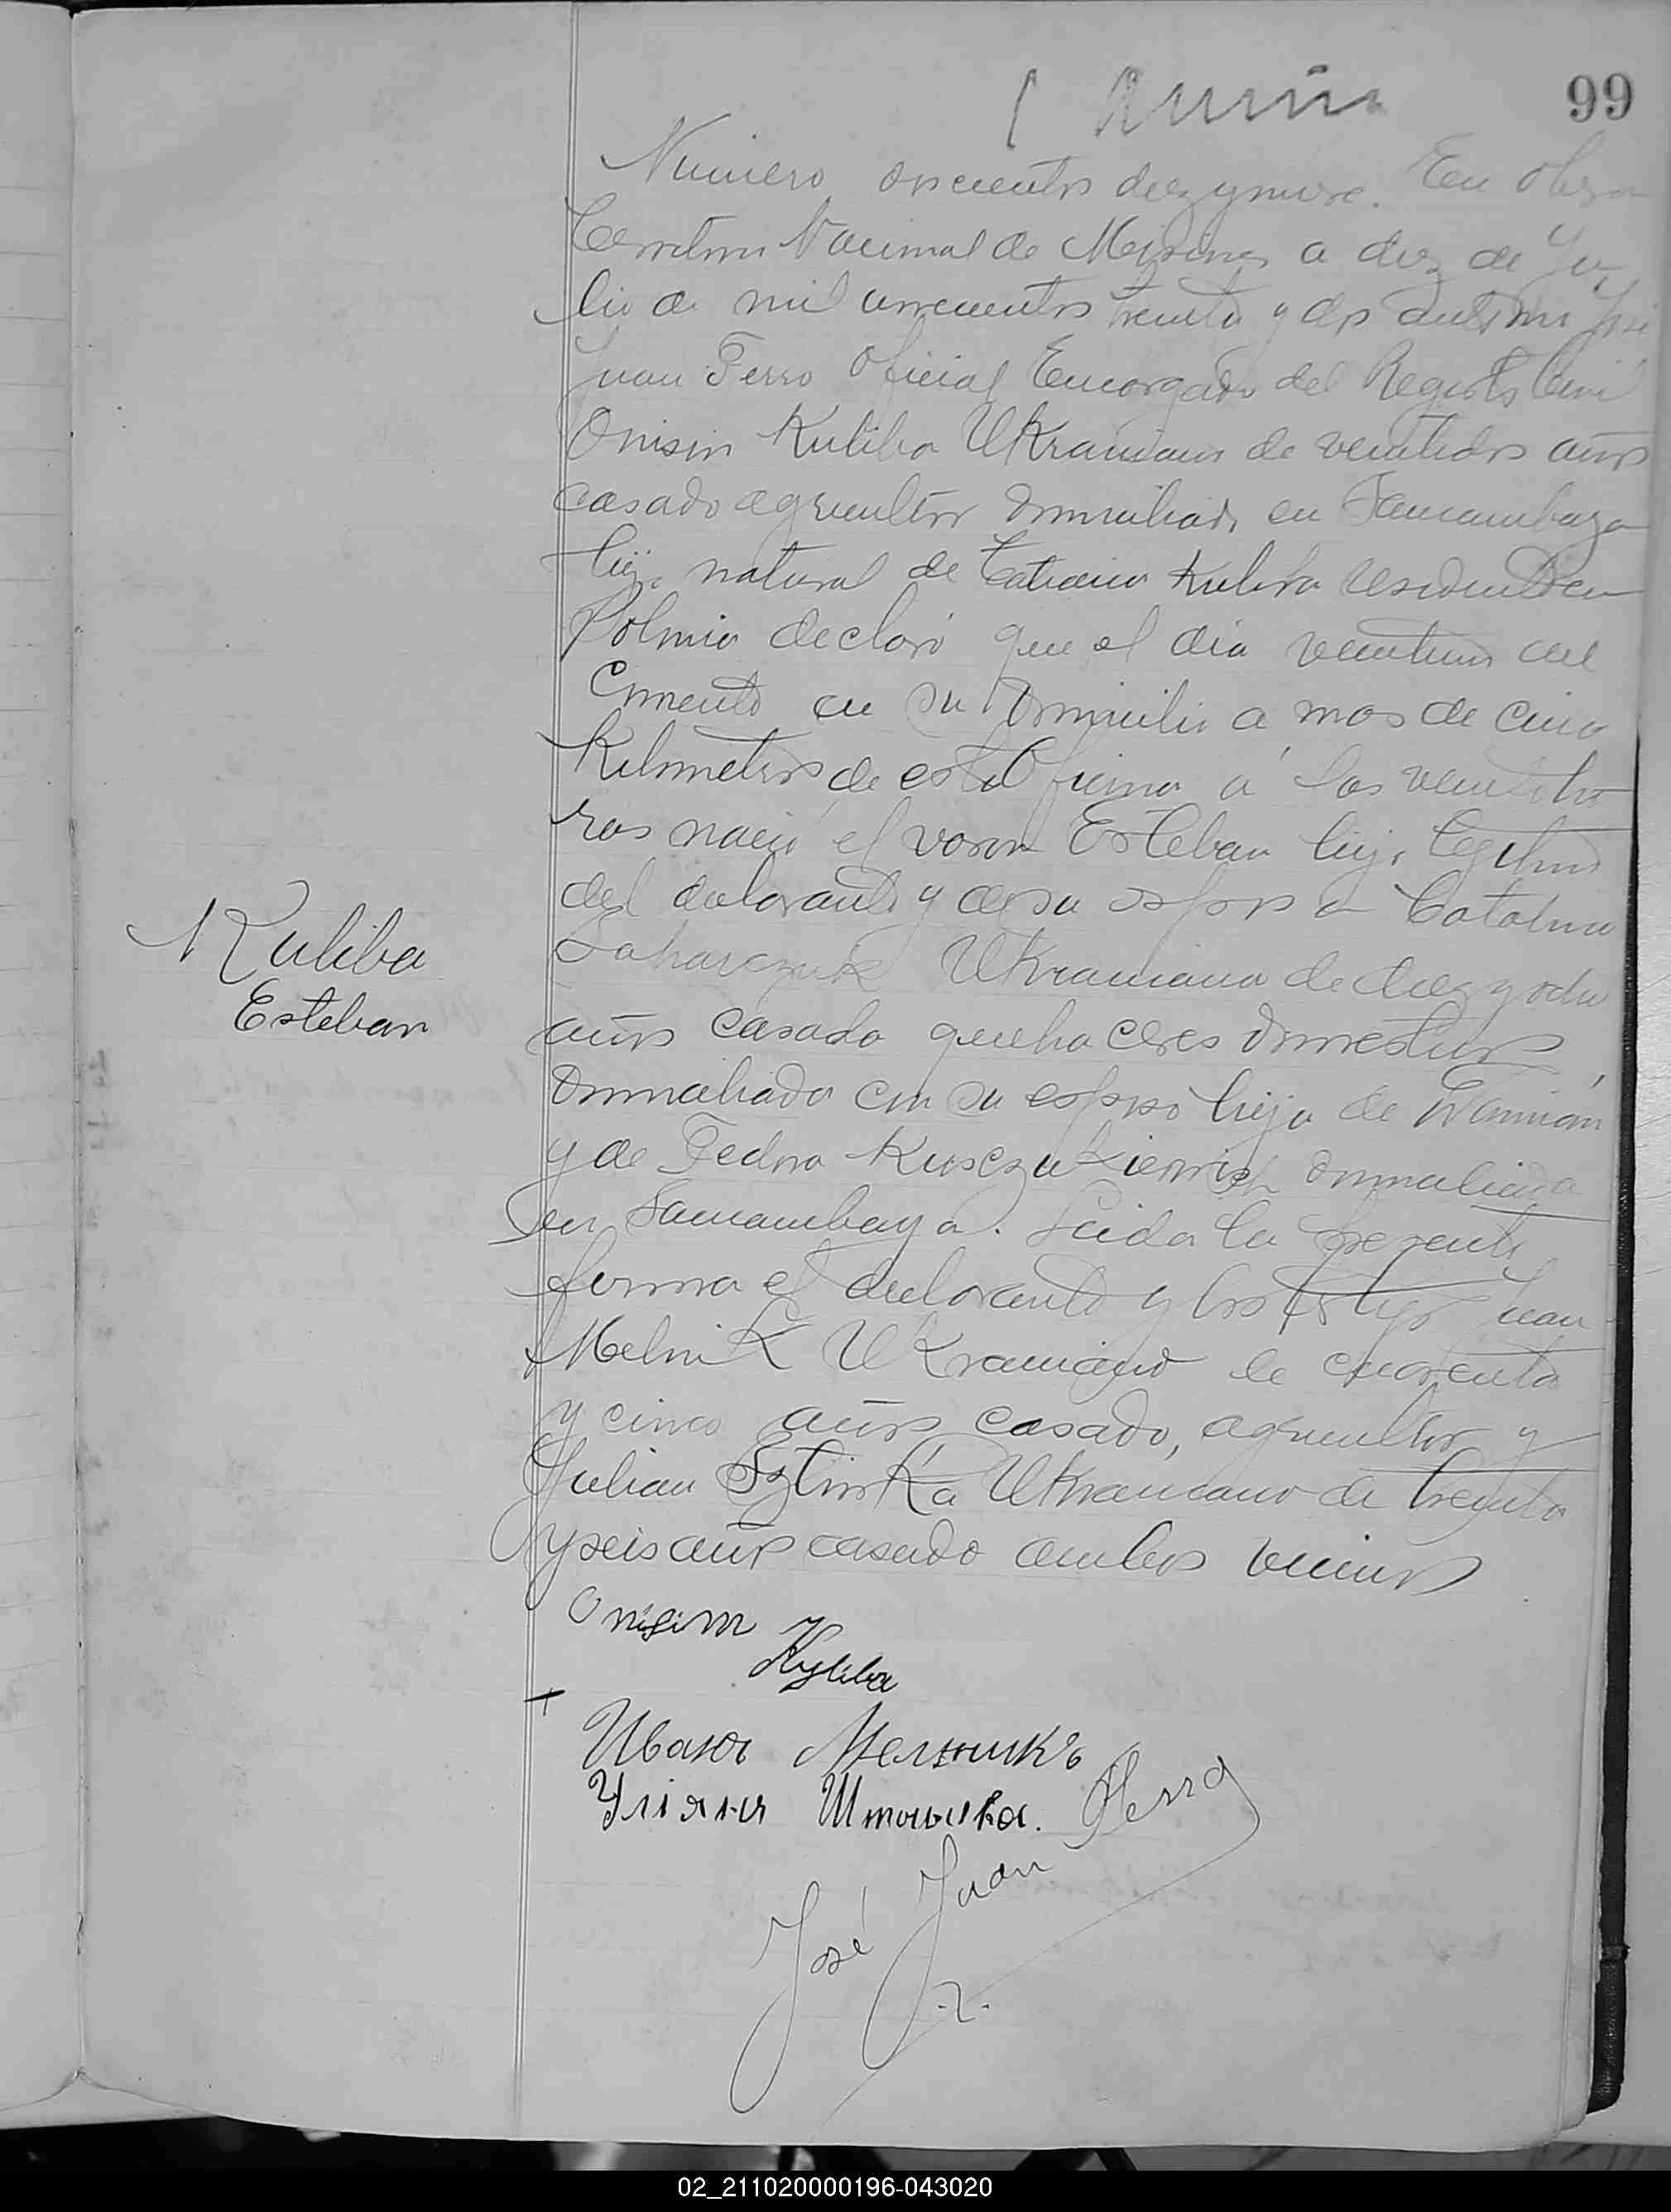 99
Numero doscientos diez y nueve. En Obera
Territorio Nacional de Misiones a diez de Ju
lio de mil novecientos treinta y dos ante mi José
Juan Ferro Oficial Encargado del Registro Civil
Onisin Kuliba Ukraniano de veintidos años
casado agricultor domiciliado en Samambaya
hijo natural de Tatiana Kuliba residente en
Polonia declaró que el dia veintiuno del
corriente en su domicilio a mas de cinco
Kilometros de esta Oficina á las veinte ho
ras nació el varon Esteban hijo legitimo
del declarante y de su esposa Catalina
Saharczuk Ukraniana de diez y ocho
años casada quehaceres domesticos
domiciliada con su esposo hija de Damián
y de Fedora domiciliada
en Samambaya. Leida la presente
firma el declarante y los testigos Juan
Melnik Ukraniano de cuarenta
y cinco años casado, agricultor y
Julian Ukraniano de treinta
y seis años casado ambos vecinos
Kuliba
Esteban
Onisim
Kyliba
+
Иванъ Мельникъ
Уліян Штоньика.
José Juan Ferro
02_211020000196-043020